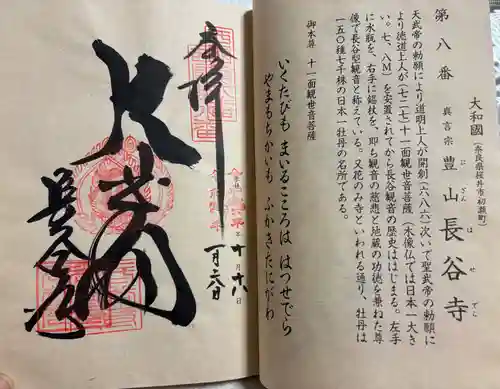 第八番
大和國(奈良県桜井市初瀬町)
真言宗 豊山 長谷寺
ぶざん はせでら
天武帝の勅願により道明上人が開創(六八六)次いで聖武帝の勅願に
より徳道上人が(七二七)十一面観世音菩薩(木像仏では日本一大き
い。七、八M)を安置されてから長谷観音の歴史ははじまる。左手
に水瓶を、右手に錫杖を、即ち観音の慈悲と地蔵の功徳を兼ねた尊
像で長谷型観音と称えている。又花のみ寺といわれる通り、牡丹は
一五〇種七千株の日本一牡丹の名所である。
御本尊 十一面観世音菩薩
いくたびも まいるこころは はつせでら
やまもちかいも ふかきたにがわ
奉拝
一月六日
大悲閣
長谷寺